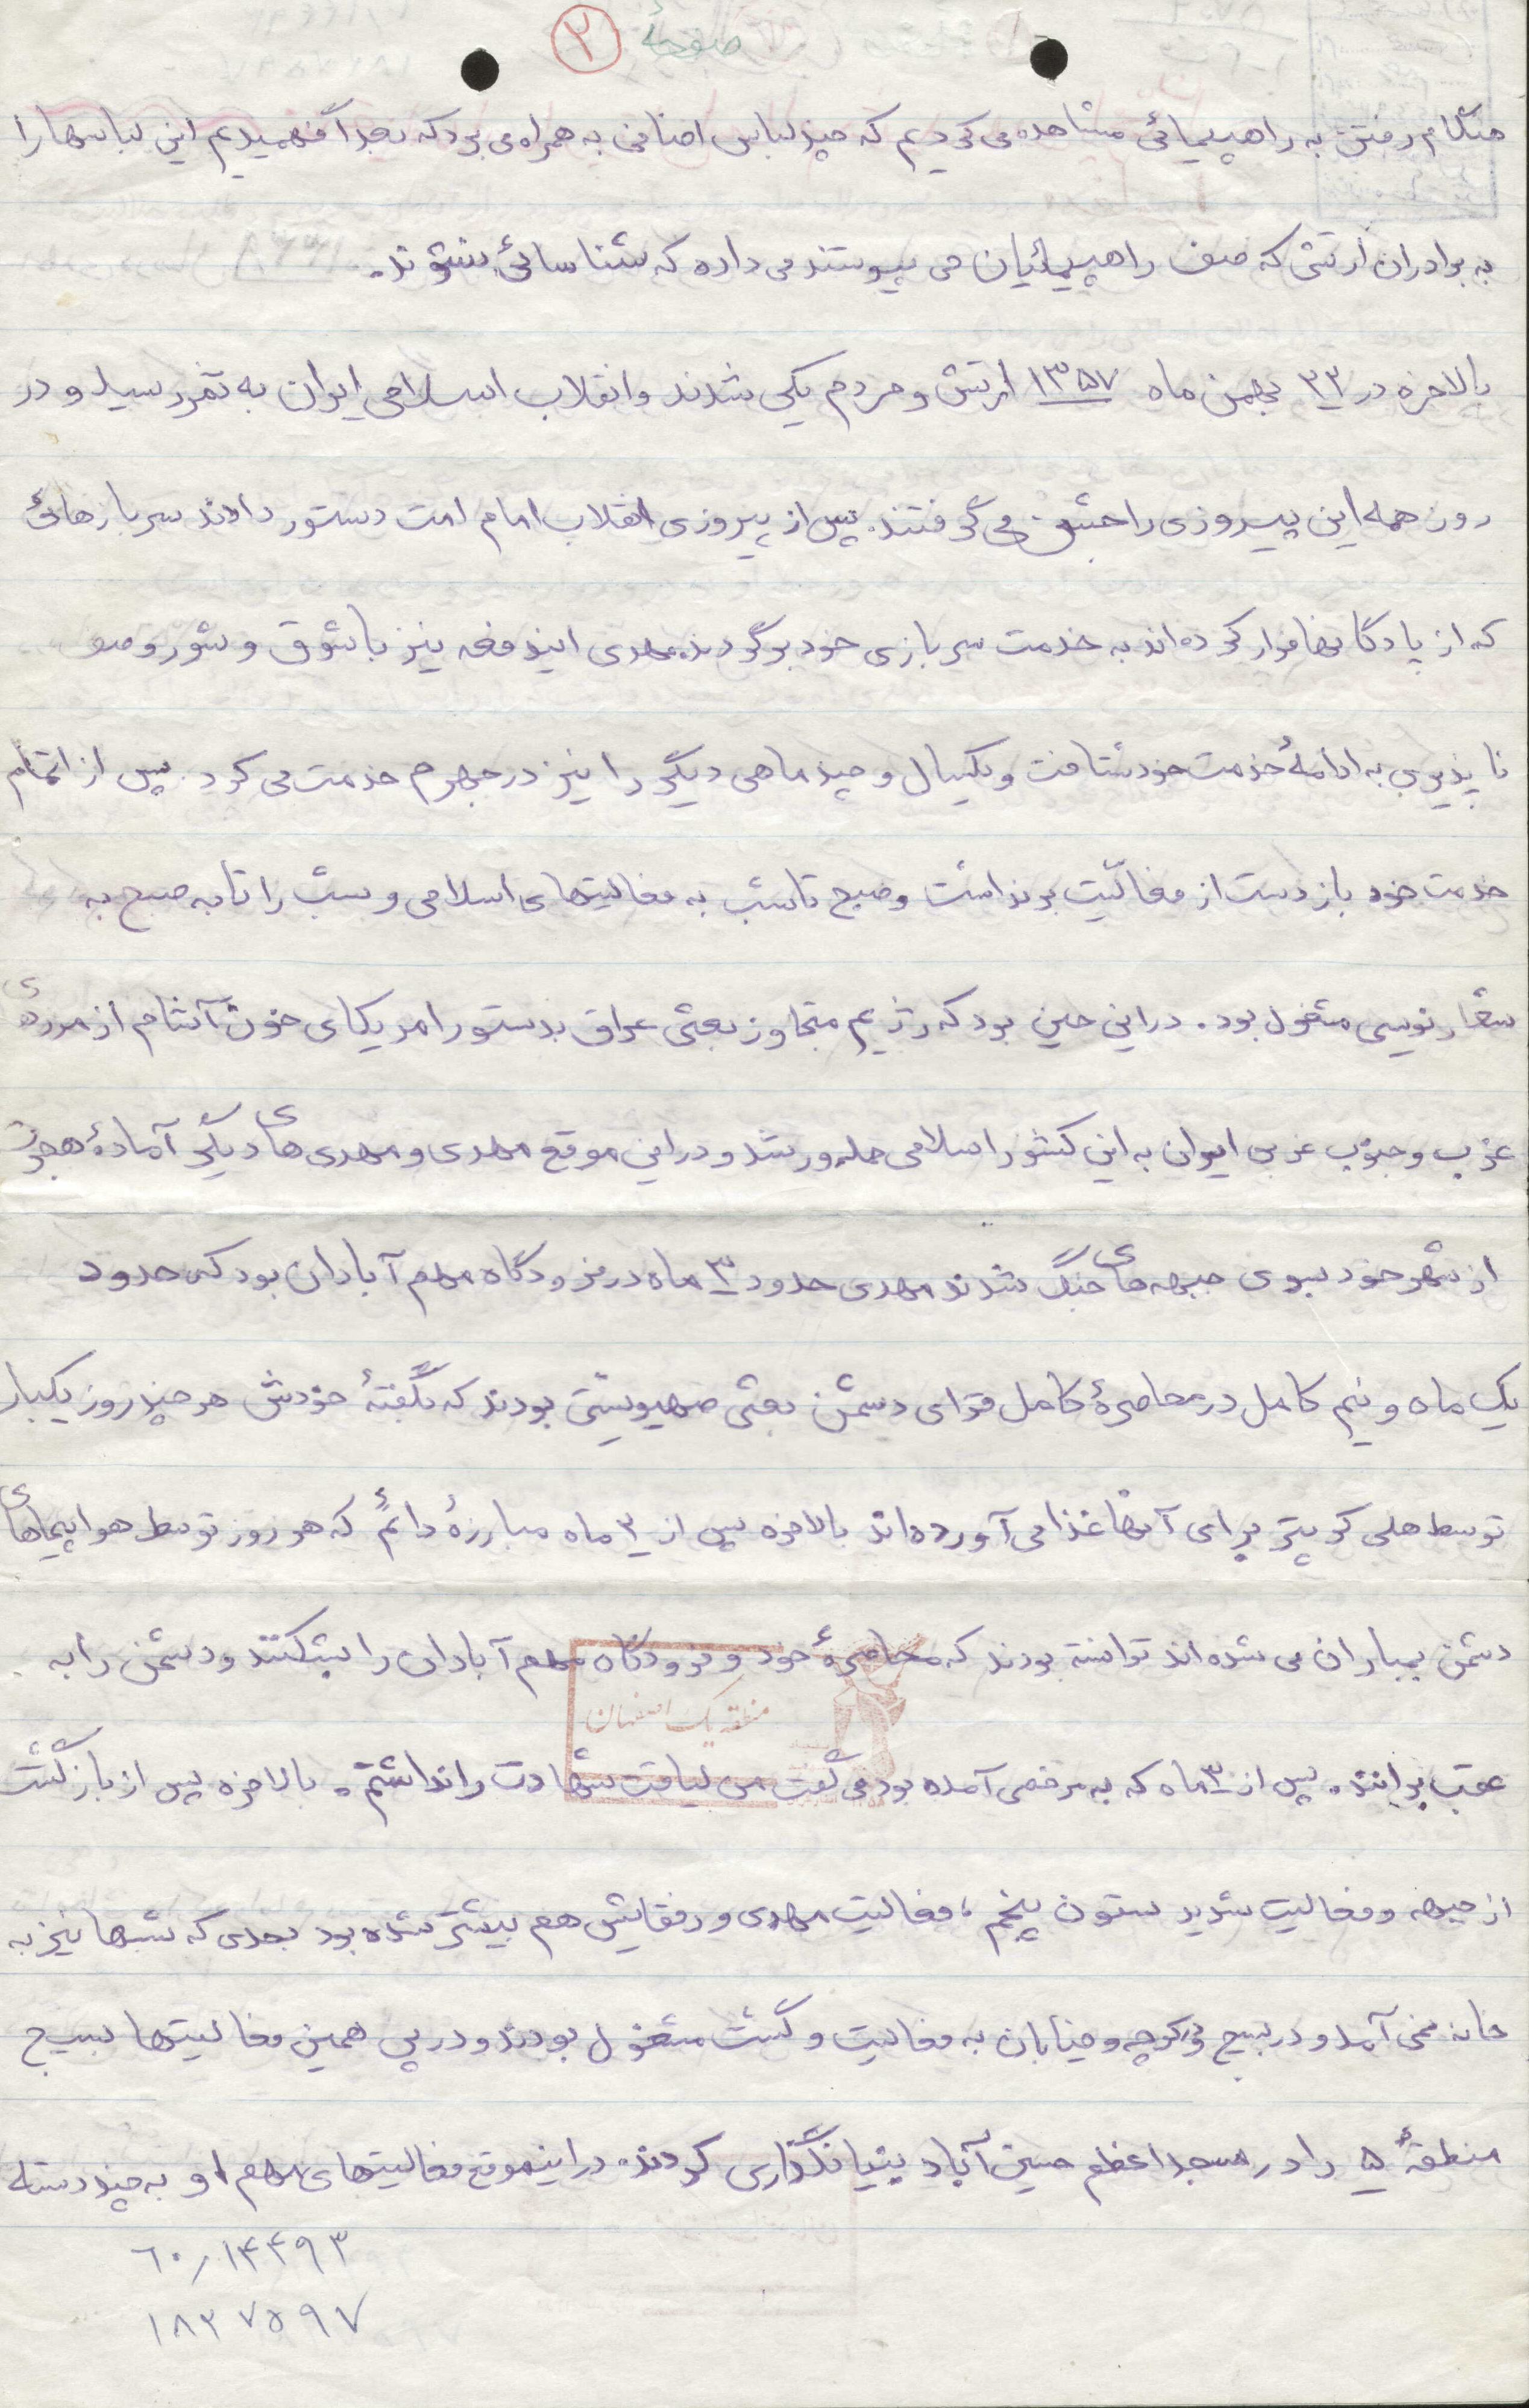 صفحهٔ ۲
هنگام رفتن به راهپیمائی مشاهده می‌کردیم که چند لباس اضافی به همراه می‌برد که بعداً فهمیدیم این لباسها را
به برادران ارتشی که صف راهپیمائیان می پیوستند می داده که شناسائی نشوند.
بالاخره در ۲۲ بهمن ماه ۱۳۵۷ ارتش و مردم یکی شدند و انقلاب اسلامی ایران به ثمر رسید و در
روز همه این پیروزی را جشن می گرفتند. پس از پیروزی انقلاب امام امت دستور دادند سربازهائی
که از پادگانها فرار کرده‌اند به خدمت سربازی خود برگردند مهدی ایندفعه نیز با شوق و شور وصف
ناپذیری به ادامهٔ خدمت خود شتافت و یکسال و چند ماهی دیگر را نیز در جهرم خدمت می کرد. پس از اتمام
خدمت خود باز دست از فعالیّت برنداشت و صبح تا شب به فعالیتهای اسلامی و شب را تا به صبح به
شعار نویسی مشغول بود. در این حین بود که رژیم متجاوز بعثی عراق بدستور امریکای خون آشام از مرزهای
غرب و جنوب غربی ایران به این کشور اسلامی حمله‌ور شد و در این موقع مهدی و مهدی های دیگر آمادهٔ هجرت
از شهر خود بسوی جبهه های جنگ شدند مهدی حدود ۳ ماه در فرودگاه مهم آبادان بود که حدود
یک ماه و نیم کامل در محاصرهٔ کامل قوای دشمن بعثی صهیونیستی بودند که بگفتهٔ خودش هر چند روز یکبار
توسط هلی کوپتر برای آنها غذا می‌آورده‌اند بالاخره پس از ۳ ماه مبارزهٔ دائم که هر روز توسط هواپیماهای
دشمن بمباران می شده اند توانسته بودند که محاصرهٔ خود و فرودگاه مهم آبادان را بشکنند و دشمن را به
عقب برانند. پس از ۳ ماه که به مرخصی آمده بود می گفت من لیاقت شهادت را نداشتم. بالاخره پس از بازگشت
از جبهه و فعالیت شدید ستون پنجم، فعالیت مهدی و رفقایش هم بیشتر شده بود بحدی که شبها نیز به
خانه نمی آمد و در بسیج و کوچه و خیابان به فعالیت و گشت مشغول بودند و در پی همین فعالیتها بسیج
منطقهٔ ۵ را در مسجد اعظم حسین آباد بنیانگذاری کردند. در اینموقع فعالیتهای مهم او به چند دسته
منطقه یک اصفهان
۶۰/۱۴۴۹۳
۱۸۲۷۵۹۷